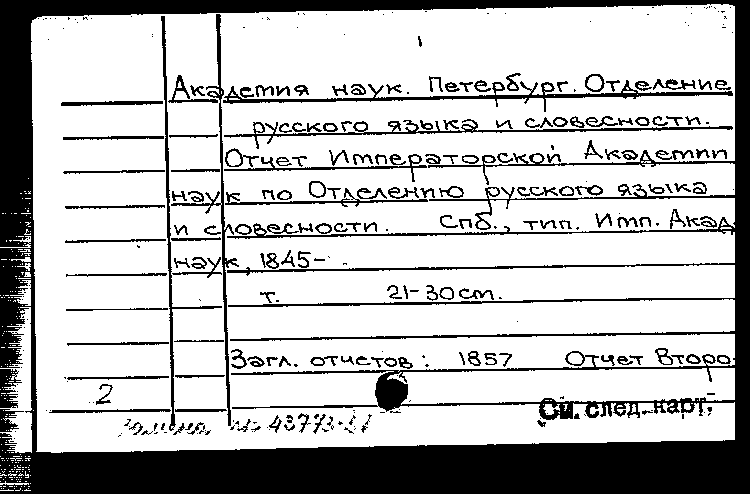 Академия наук. Петербург. Отделение
русского языка и словесности.
Отчет Императорской Академии
наук по Отделению русского языка
и словесности. Спб., тип. Имп. Акад.
наук, 1845-
т. 21-30 см.
Загл. отчетов: 1857 Отчет Второ-
2
См. след. карт.
Замена № 43773-